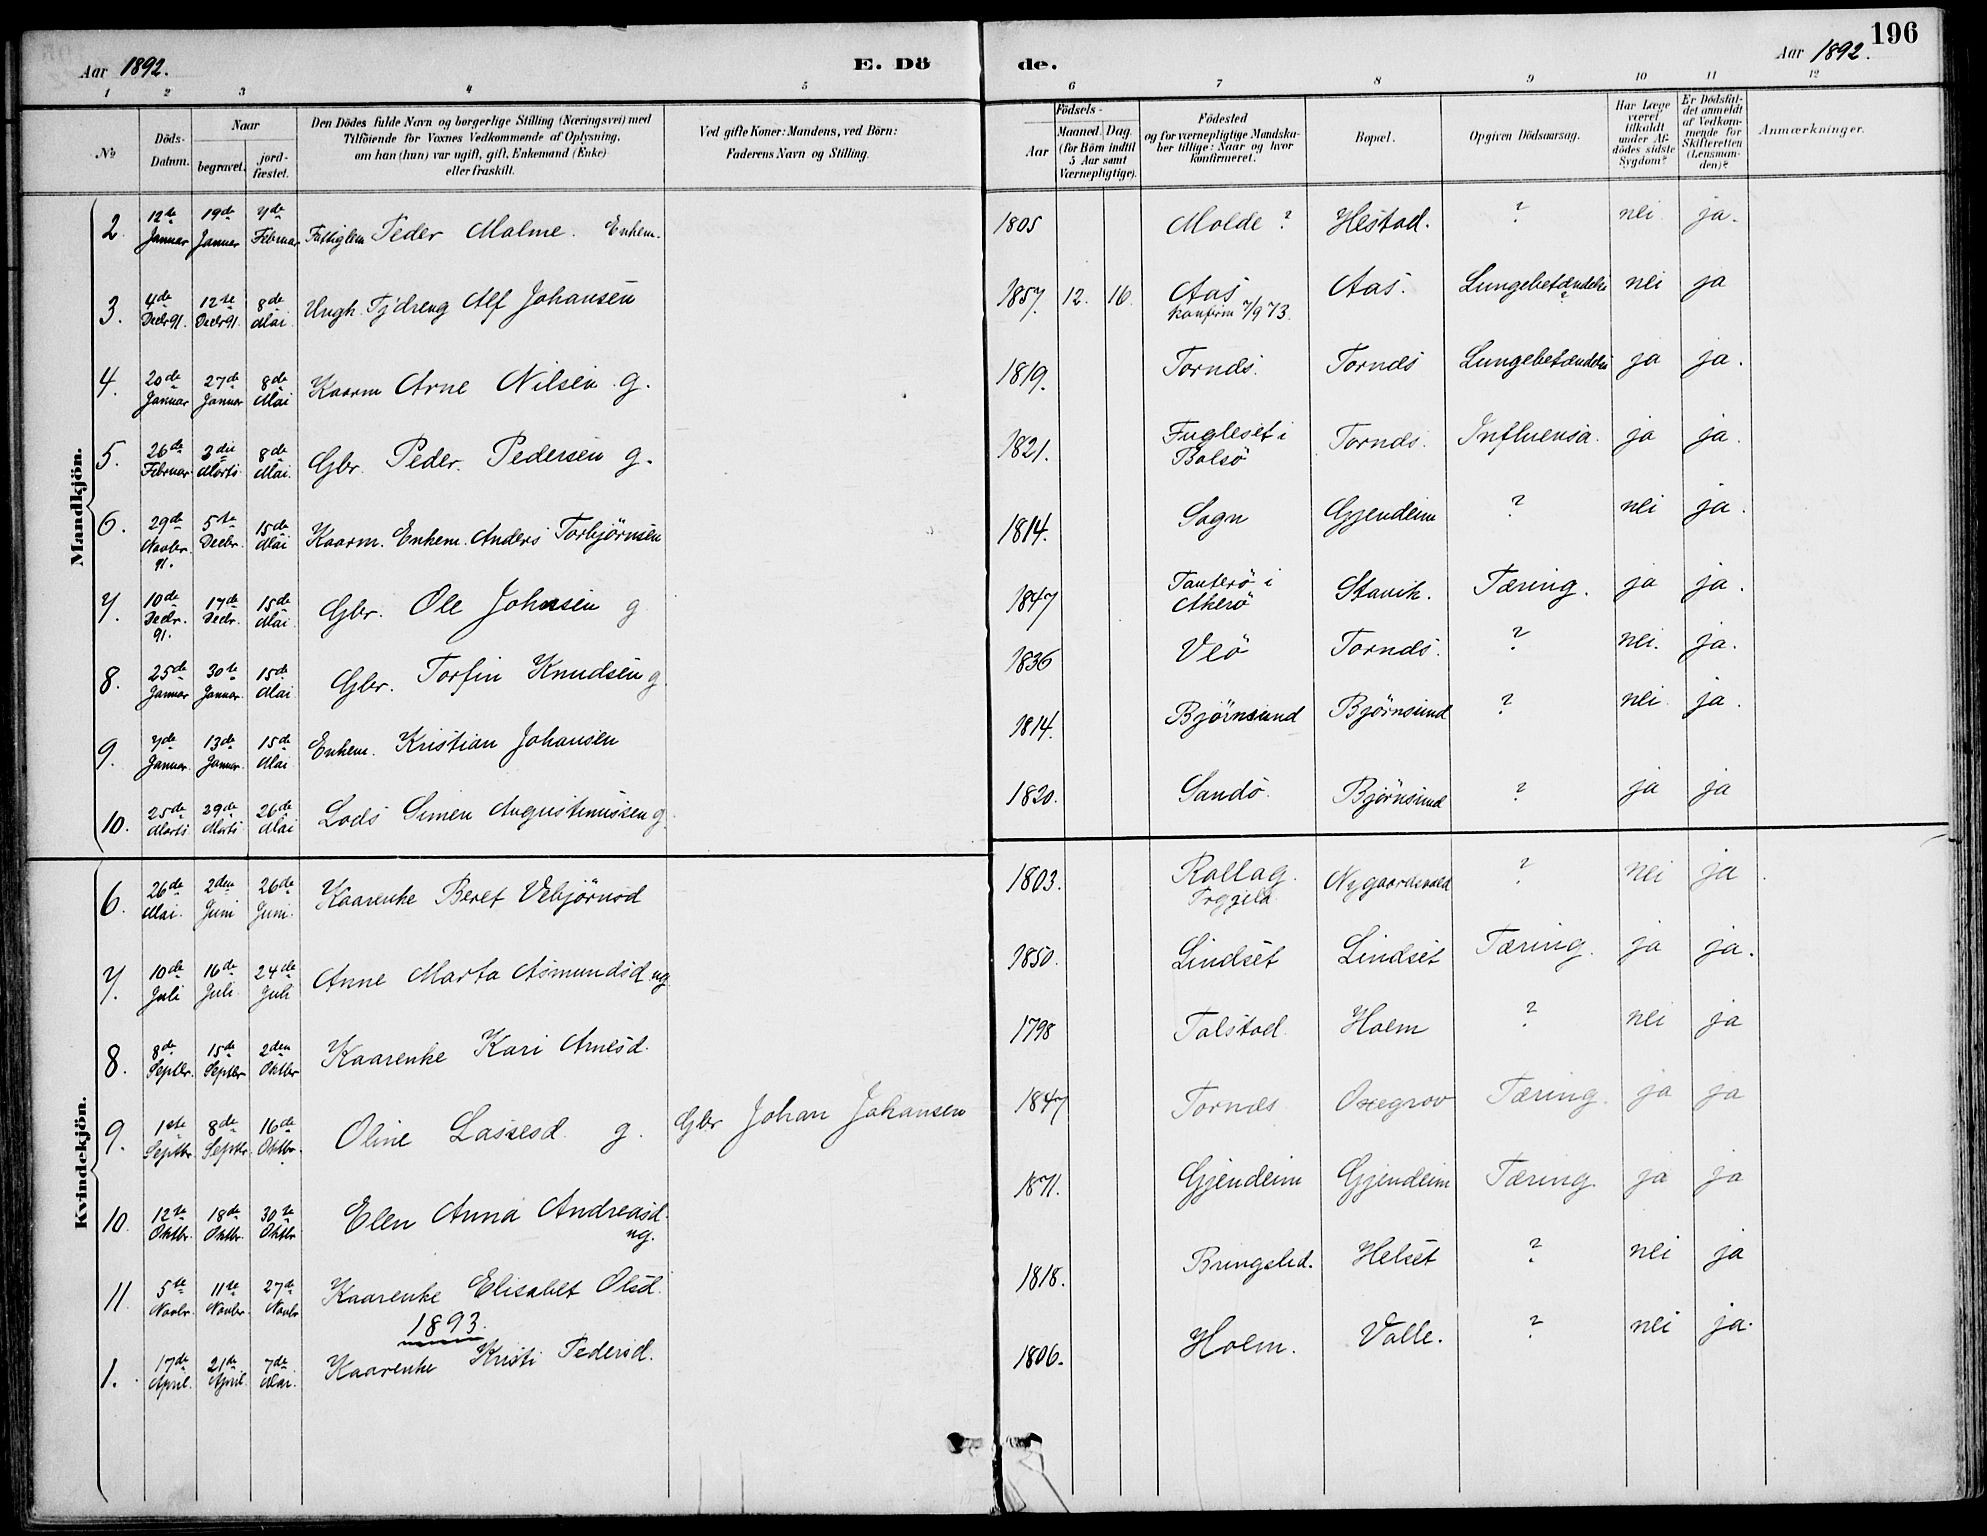 196
Aar 1892. E. Dö de. Aar 1892.
1 2 3 4 5 6 7 8 9 10 11 12
№ Döds-Datum. Naar begravet. jord-fæstet. Den Dödes fulde Navn og borgerlige Stilling (Næringsvei) med Tilföiende for Voxnes Vedkommende af Oplysning, om han (hun) var ugift, gift, Enkemand (Enke) eller fraskilt. Ved gifte Koner: Mandens, ved Börn: Faderens Navn og Stilling. Födsels- Aar Maaned. Dag. (for Börn indtil 5 Aar samt Værnepligtige). Födested og for værnepligtige Mandska-ber tillige: Naar og hvor konfirmeret. Bopæl. Opgiven Dödsaarsag. Har Læge været tilkaldt under Af-dödes sidste Sygdom? Er Dödsfal-det anmeldt af Vedkom-mende for Skifteretten (Lensman-den)? Anmærkninger.
Mandkjön.
2. 12te Januar 19de Januar 7de Februar Fattiglem Peder Malme. Enkem. 1805 Molde? Hestad. ? nei ja.
3. 4de Decbr 91. 12te Decbr 91. 8de Mai Ungk. Tj.dreng Alf Johansen 1857. 12. 16. Aas konfirm 7/9 73. Aas. Lungebetændelse nei ja
4. 20de Januar 27de Januar 8de Mai Kaarm Arne Nilsen g. 1819. Tornæs. Tornæs Lungebetændelse ja ja.
5. 26de Februar 3die Marts 8de Mai. Gbr. Peder Pedersen g. 1821. Fugleset i Bolsö Tornæs. Influensa. ja ja.
6. 29de Novbr. 91. 5te Decbr. 15de Mai Kaarm. Enkem. Anders Torbjørnsen 1814. Sogn Gjendeim ? nei ja.
7. 10de Decbr. 91. 17de Decbr. 15de Mai Gbr. Ole Johnsen g 1847 Tauterö i Akerö Stavik. Tæring. ja ja.
8. 25de Januar 30te Januar. 15de Mai Gbr. Torfin Knudsen g 1836 Veö Tornæs. ? nei. ja.
9. 7de Januar. 13de Januar. 15de Mai Enkem. Kristian Johansen 1814. Bjørnsund Bjørnsund ? nei. ja.
10. 25de Marts 29de Marts 26de Mai Lods Simen Augustinussen g. 1820. Sandö. Bjørnsund ? ja ja
Kvindekjön.
6. 26de Mai. 2den Juni 26de Juni. Kaarenke Beret Vebjörnsd 1803. Rollag. Nygaardsvold ? nei ja.
7. 10de Juli 16de Juli. 24de Juli Anne Marta Asmundsd. ug 1850. Lindset Lindset Tæring. ja ja.
8. 8de Septbr. 15de Septbr 2den Oktbr Kaarenke Kari Arnesd. 1798 Talstad. Holm ? nei ja
9. 1ste Septbr. 8de Septbr. 16de Oktbr. Oline Lassesd. g. Gbr Johan Johansen 1847 Tornæs Oxegrov Tæring. ja ja
10. 12te Oktbr. 18de Oktbr. 30te Oktbr Elen Anna Andreasd. ug. 1871. Gjendeim Gjendeim Tæring ja ja
11. 5te Novbr. 11te Novbr. 27de Novbr Kaarenke Elisabet Olsd. 1818. Bringsled. Helset ? nei ja
1893.
1. 17de April. 21de April. 7de Mai. Kaarenke Kristi Pedersd. 1806. Holm. Valle. ? nei ja.